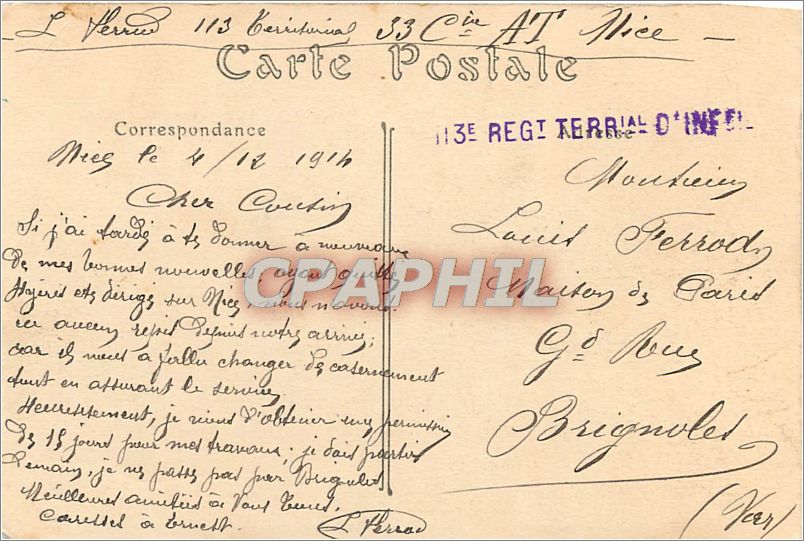 L Ferrod 113 Territorial 33 Cie AT Nice
Carte Postale
Correspondance
113E REGT TERRIAL D'INFIE
Adresse
Nice le 4/12 1914
Cher Cousin
Si j'ai tardé à te donner à nouveau
de mes bonnes nouvelles, ayant quitté
Hyères et dirigé sur Nice, nous n'avons
eu aucun repos depuis notre arrivée,
car il nous a fallu changer de casernement
tout en assurant le service
Heureusement, je viens d'obtenir une permission
de 15 jours pour mes travaux. je dois partir
Demain, je ne passe pas par Brignoles
Meilleures amitiés à Vous tous,
Caresses à Ernest.
L Ferrod
Monsieur
Louis Ferrod
Maison de Paris
Gd Rue
Brignoles
(Var)
CPAPHIL